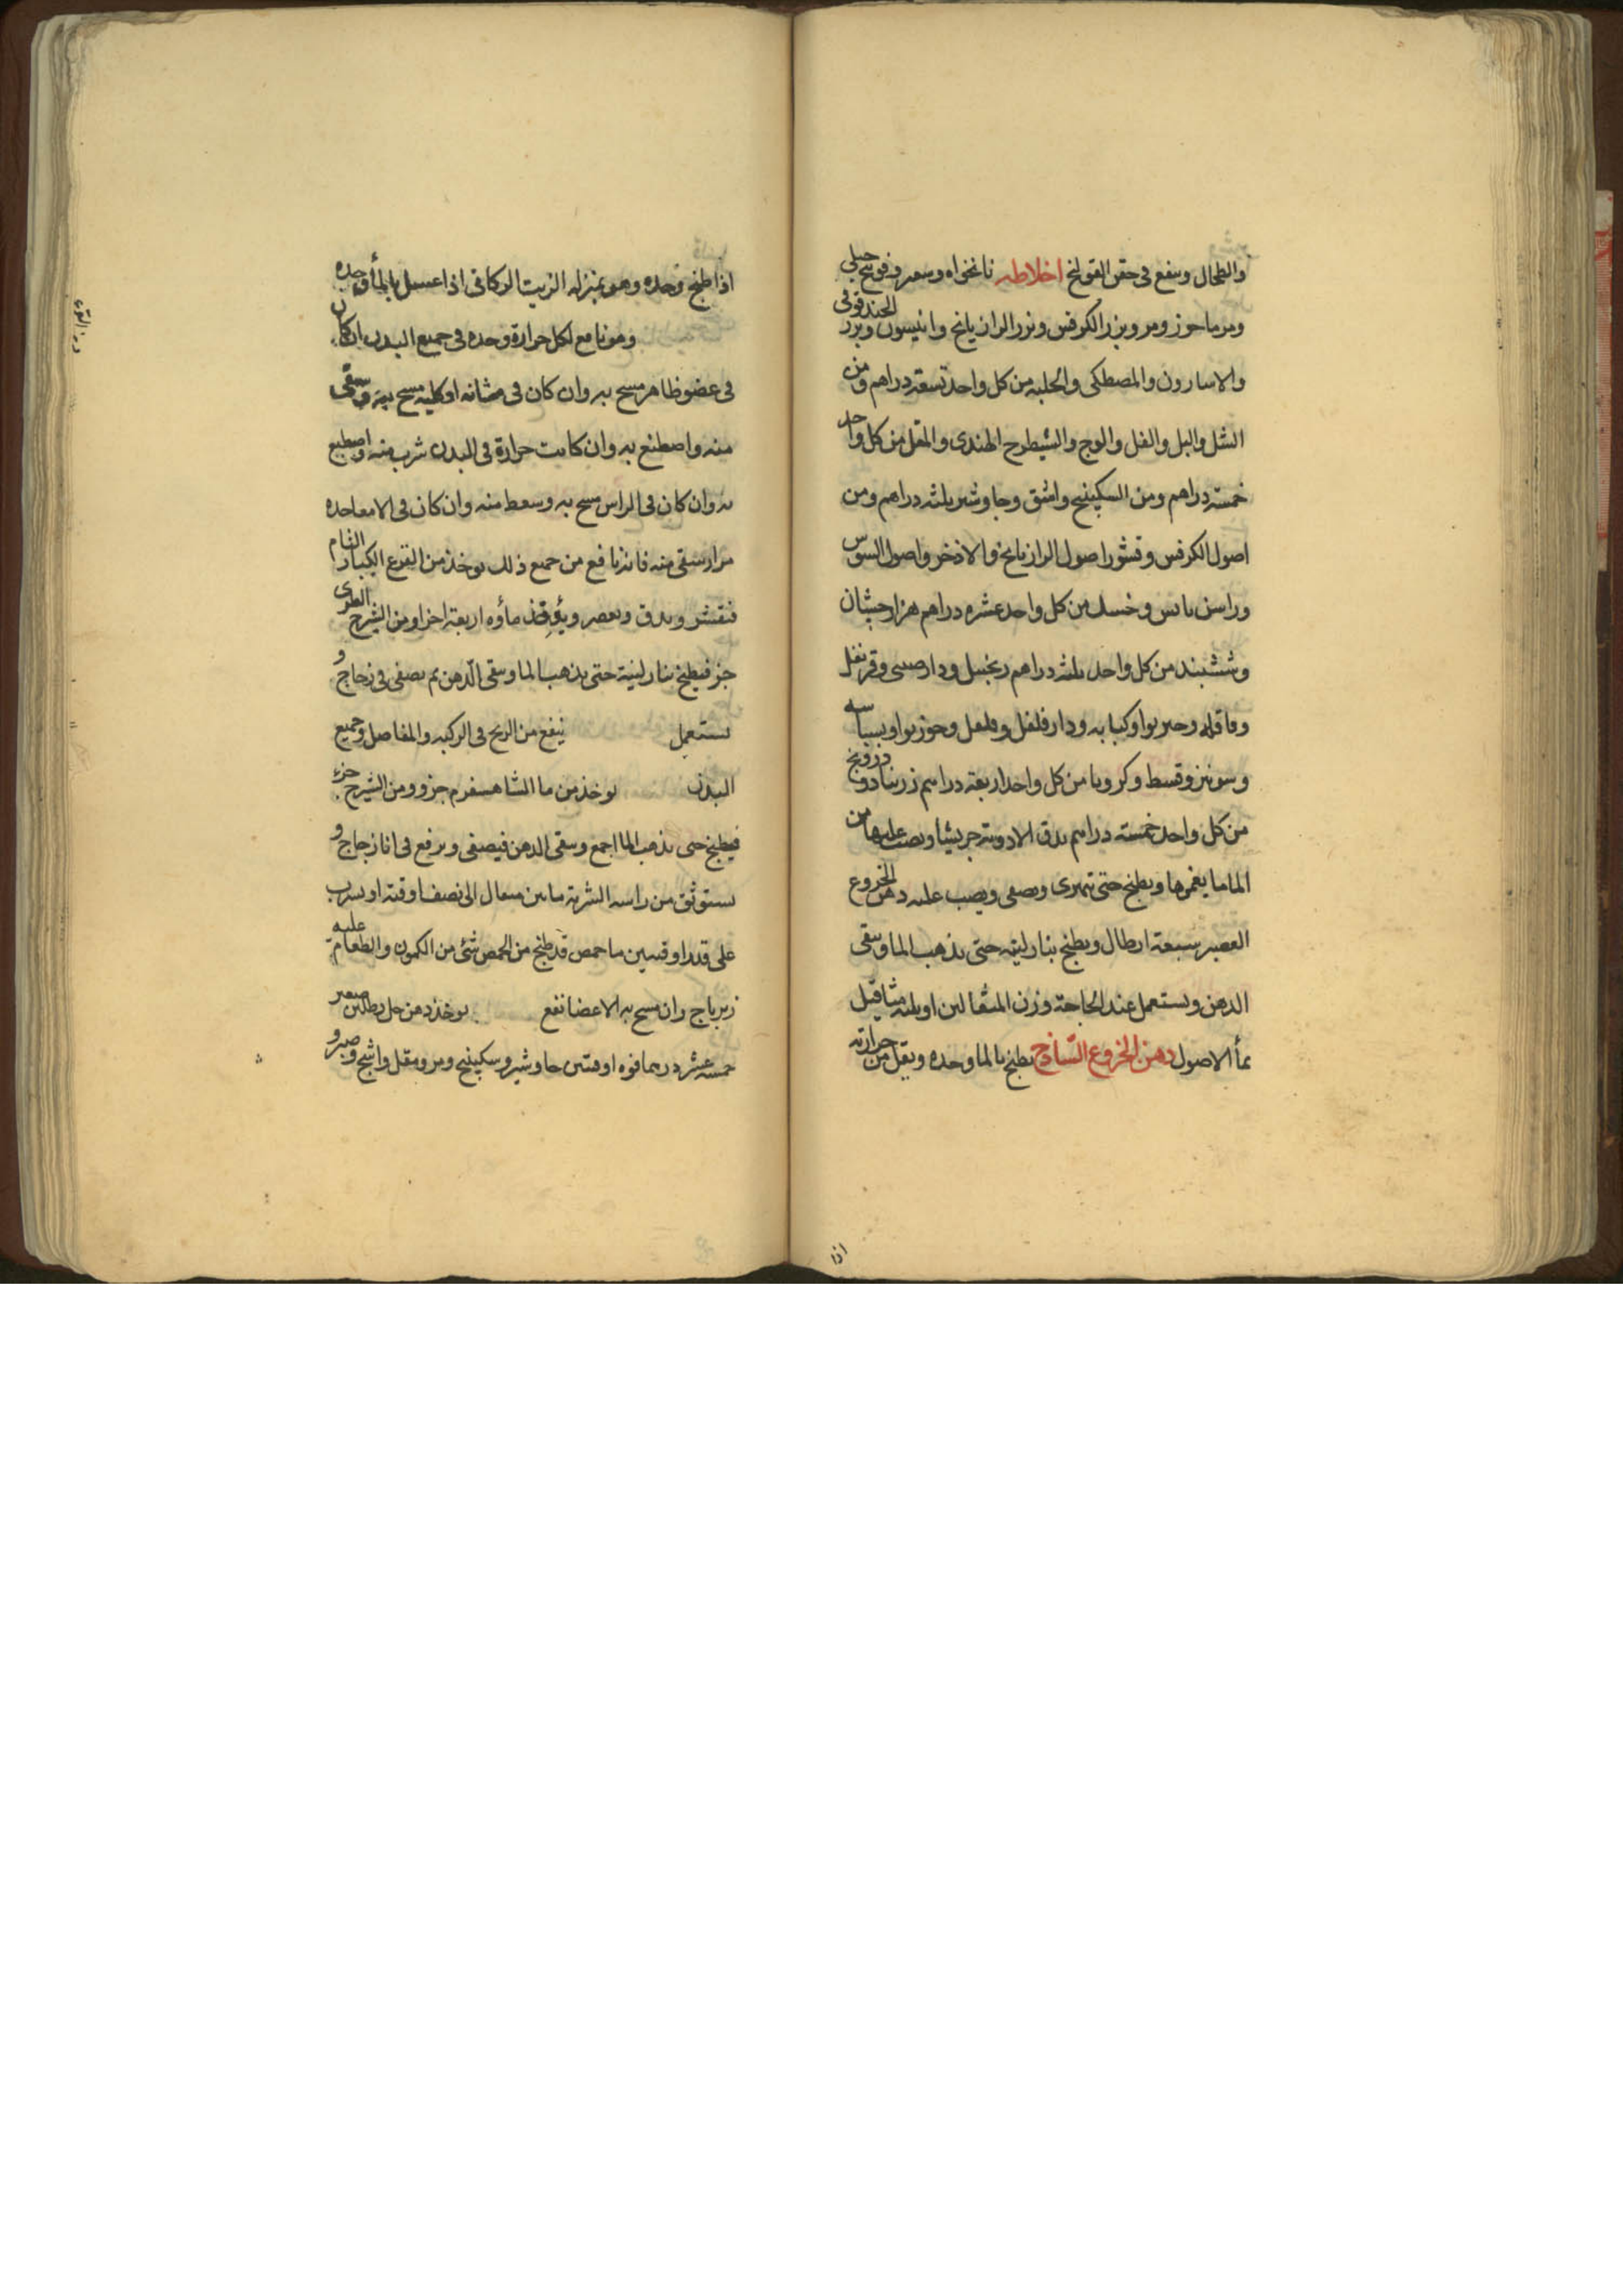 والطحال وينفع فى حقن القولنج اخلاطه نانخواه وسعتر وفوتنج جبلى
ومرماحوز ومرو وبزر الكرفس وبزر الرازيانج وانيسون وبزر الحندقوقى
والاسارون والمصطكى والحلبه من كل واحد تسعة دراهم ومن
الشل والبل والفل والوج والشيطرج الهندى والمقل من كل واحد
خمسة دراهم ومن السكبينج واشق وجاوشير ثلثه دراهم ومن
اصول الكرفس وقشور اصول الرازيانج والاذخر واصول السوس
وراسن يابس وخسك من كل واحد عشره دراهم هزارجشان
وششبندان من كل واحد ثلثه دراهم زنجبيل ودارصينى وقرنفل
وقاقله وخيربوا وكبابه ودارفلفل وفلفل وجوزبوا وبسباسه
وشونيز وقسط وكرويا من كل واحد اربعة دراهم زرنباد ودرونج
من كل واحد خمسة دراهم يدق الادوية جريشا ويصب عليها من
الما ما يغمرها ويطبخ حتى تتهرى ويصفى ويصب عليه دهن الخروع
العصير سبعة ارطال ويطبخ بنار لينه حتى يذهب الما ويبقى
الدهن ويستعمل عند الحاجة وزن المثقالين او ثلثه مثاقيل
بمأ الاصول دهن الخروع الساذج يطبخ بالما وحده ويقل من حرارته
اذا
اذا طبخ وحده وهو بمنزله الزيت الركابى اذا غسل بالمأ وحده
وهو نافع لكل حرارة وحده فى جميع البدن ان كان
فى عضو ظاهر مسح به وان كان فى مثانه او كليه مسح به وسقى
منه واصطبغ به وان كانت حرارة فى البدن شرب منه واصطبغ
به وان كان فى الراس مسح به وسعط منه وان كان فى الامعا حده
مرار سقى منه فانه نافع من جميع ذلك يوخذ من القرع الكبار التام
فيقشر ويدق ويعصر ويؤخذ ماؤه اربعة اجزا ومن الشيرج الطرى
جز فيطبخ بنار لينة حتى يذهب الما ويبقى الدهن ثم يصفى فى زجاج و
يستعمل ينفع من الريح فى الركبه والمفاصل وجميع
البدن يوخذ من ما الشاهسفرم جزو ومن الشيرج جزء
فيطبخ حتى يذهب الما اجمع ويبقى الدهن فيصفى ويرفع فى انا زجاج و
يستوثق من راسه الشربة ما بين مثقال الى نصف اوقية او يشرب
على قدر اوقيتين ما حمص قد طبخ من الحمص شئ من الكمون والطعام عليه
زيرباج وان مسح به الاعضا نفع يوخذ دهن حل رطلين صعتر
خمسه عشر درهما فوه اوقتين جاوشير وسكبينج ومر ومقل واشج وصبر و